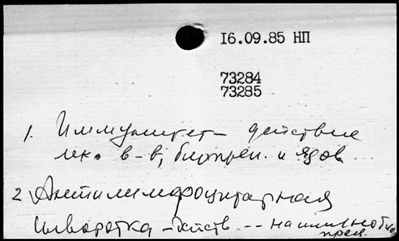 16.09.85 НП
73284
73285
1. Иммунитет – действие
лек. в-в, биопреп. и ядов
2 Антилимфоцитарная
сыворотка – действ. --- на иммунобио
преп.